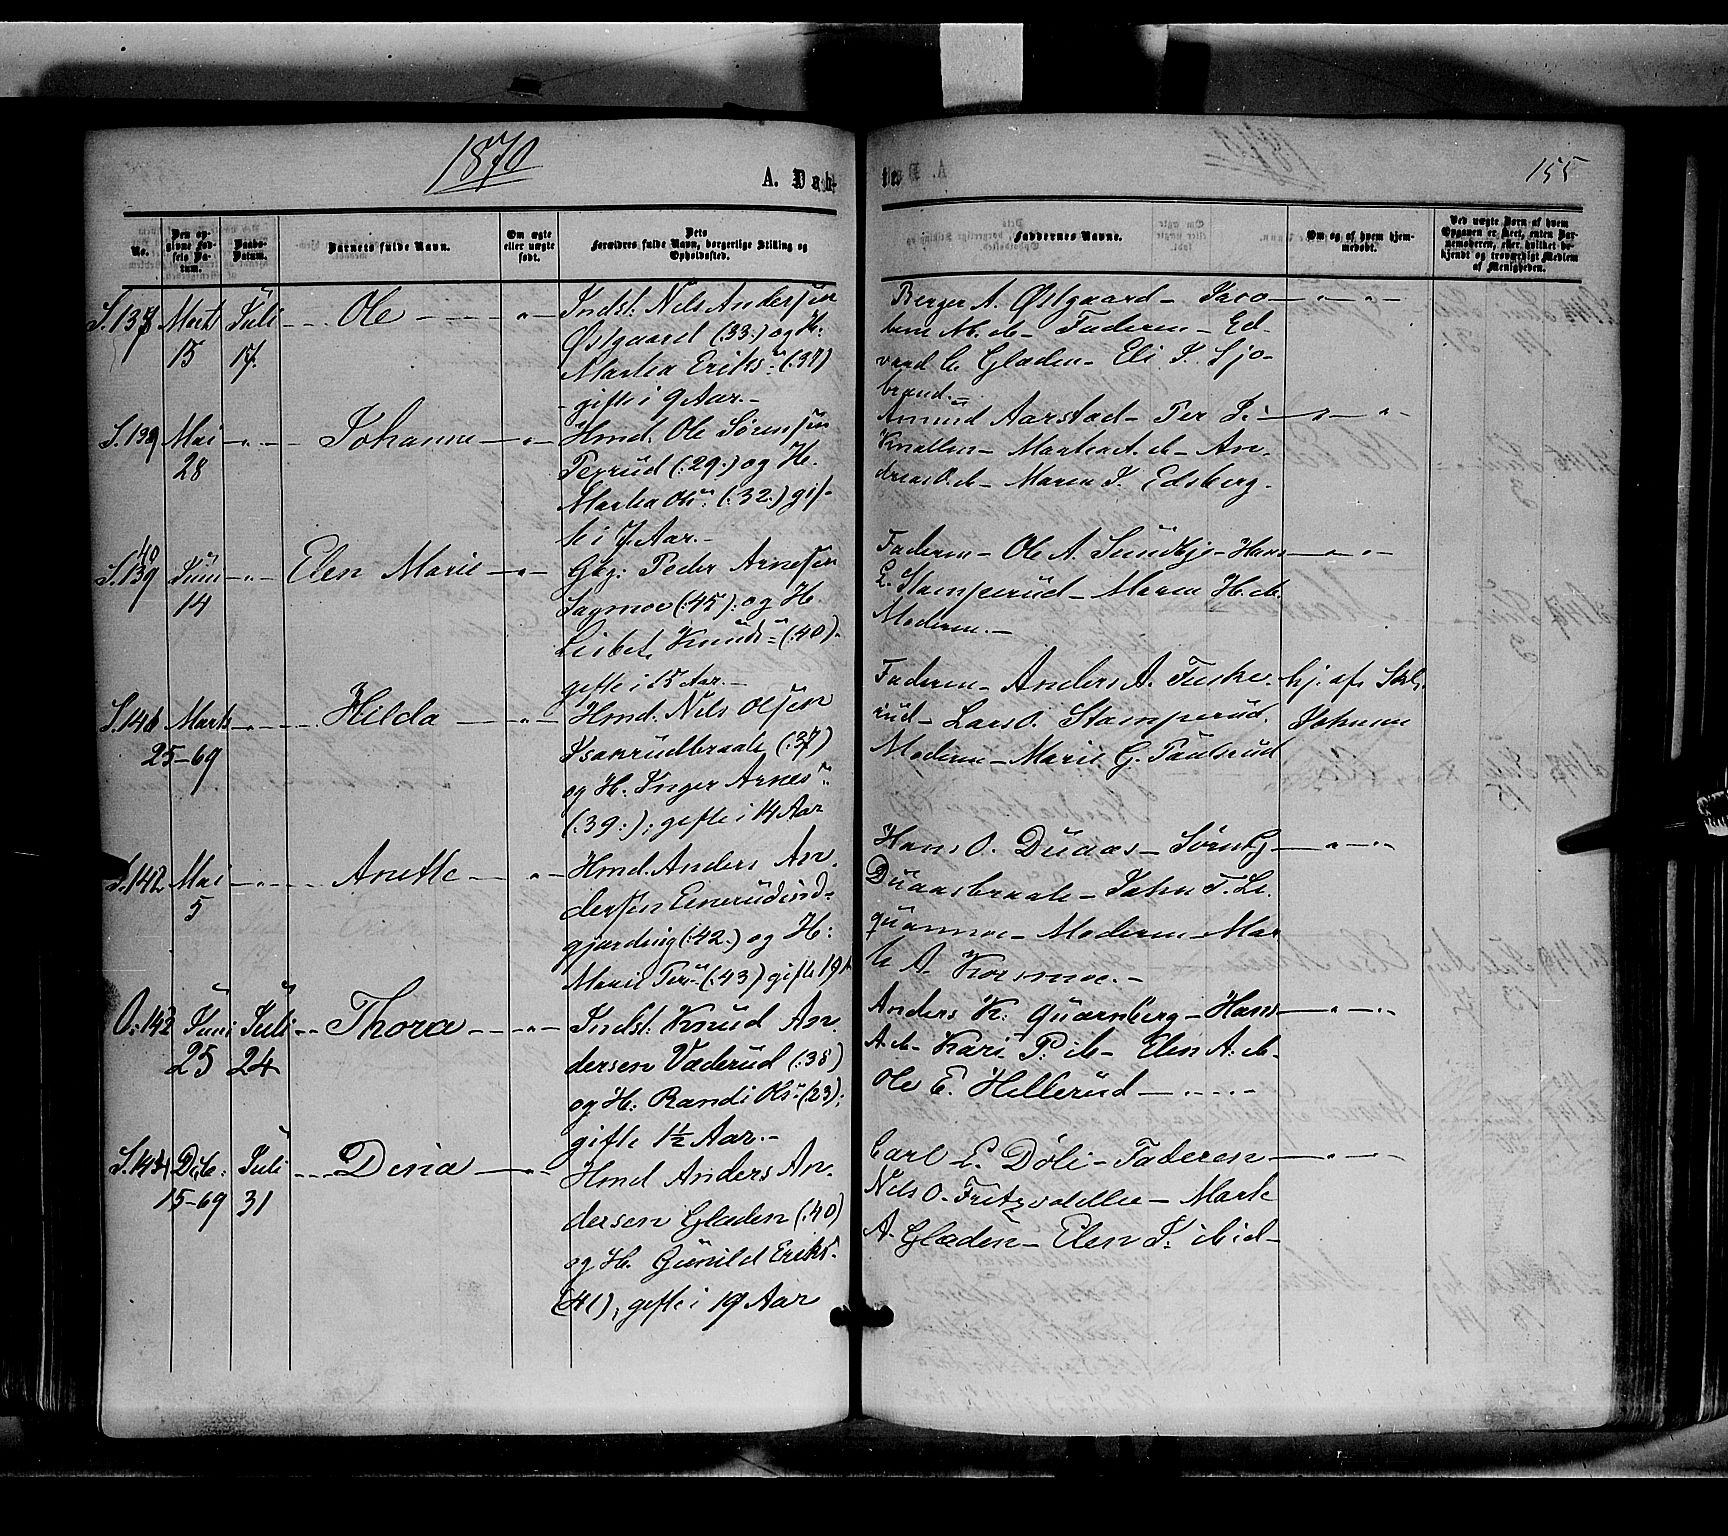 1870
A. Døb-
te.
155
No.
Den opgivne Fødsels Datum.
Daabs-Datum.
Barnets fulde Navn.
Om ægte eller uægte født.
Dets Forældres fulde Navn, borgerlige Stilling og Opholdssted.
Faddernes Navne.
Om og af hvem hjemmedøbt.
Ved uægte Børn af hvem Opgaven er skeet, enten Barnemoderen, eller hvilket bekjendt og troværdigt Medlem af Menigheden.
S. 138 Marts 15 Juli 17. Ole
Indst. Nils Andersen
Østgaard (:33:) og H:
Marthea Eriksd: (:37)
gifte i 9 Aar.-
Berger A. Østgaard - Jaco-
bine N. ib - Faderen - Ed-
vard C. Gladen - Eli J. Sjo-
brend.
S. 139 Mai 28 Johanne
Hmd. Ole Sørensen
Perrud (:29:) og H.
Marthea Olsd: (:32.) gif-
te i 7 Aar.-
Amund Aarstad - Per J.
Knallen - Marthea A. ib - An-
dreas O. ib - Maren J. Edsberg.
S. 140 Juni 14 Elen Marie
Gbg: Peder Arnesen
Sagmoe (:45:) og H.
Lisbet Knudsd: (:40)
gifte i 15 Aar.-
Faderen - Ole A. Sundbye - Hans
L. Stamperud - Maren H. ib.
Moderen.-
S. 141 Marts 25-69 Hilda
Hmd. Nils Olsen
Isanrudbraate (:37)
og H. Inger Arnesd:
(:39:); gifte i 14 Aar
Faderen - Anders A. Fiske-
rud - Lars O. Stamperud.
Moderen - Marie G. Paulsrud
hj. af Skl.
Johnsen
S. 142 Mai 5 Anette
Hmd. Anders An-
dersen Einerudind-
gjærding (:42.) og H:
Marie Persd (:43) gifte 19
Hans O. Duaas - Sørn
Duaasbraate - John T. Le-
quamoe - Moderen - Mar-
te A. Korsmoe.-
O: 143 Juni 25 Juli 24 Thora
Indst. Knud An-
dersen Væderud (:38)
og H: Randi Olsd (:23);
gifte 1½ Aar.-
Anders K. Quarnberg - Hans
A. ib - Kari P. ib - Elen A. ib -
Ole E. Hillerud
S. 144 Dcb: 15-69 Juli 31 Dina
Hmd Anders An-
dersen Gladen (:40)
og H. Gunild Eriksd.
(41), gifte i 19 Aar
Carl E. Døli - Faderen
Nils O. - Marte
A. Gladen - Elen J. ibid -